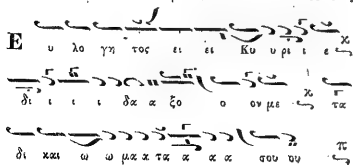 Ε υ λο γη τος ει ει Κυ υ ρι ι ε κ
δι ι ι ι δα α ξο ο ον με κ τα
δι και ω ω μα α τα α α α σου ου π